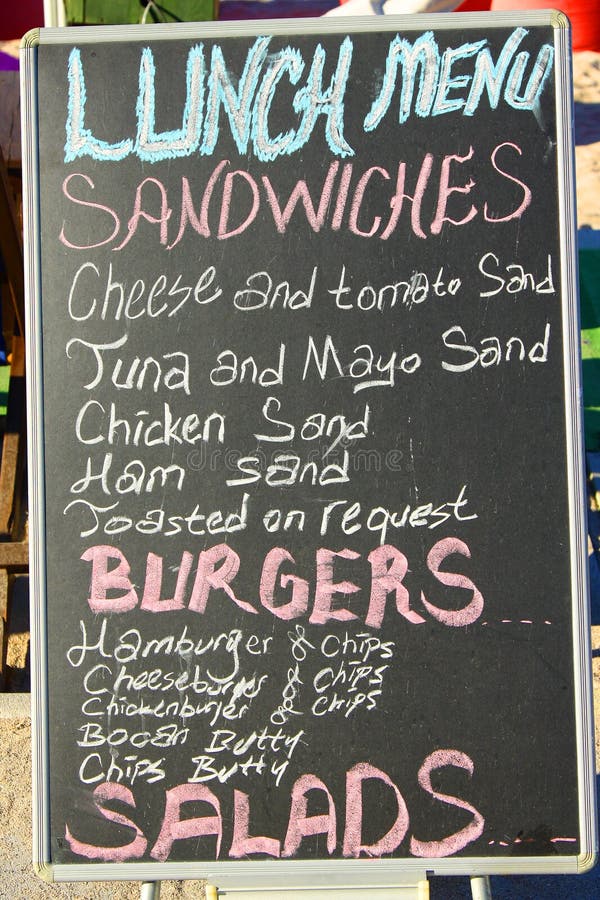 LUNCH MENU
SANDWICHES
Cheese and tomato Sand
Tuna and Mayo Sand
Chicken Sand
Ham Sand
Toasted on request
BURGERS.....
Hamburger & Chips
Cheeseburger & Chips
Chickenburger & Chips
Bocan Butty
Chips Butty
SALADS.....
dreamstime.com